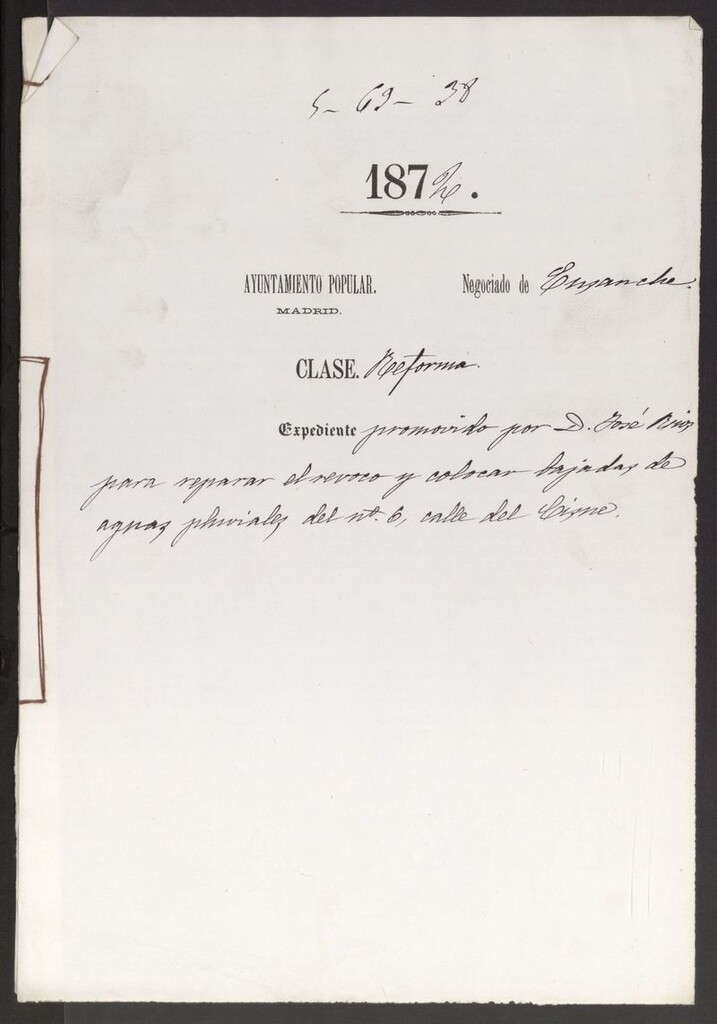 5-69-38
1872.
AYUNTAMIENTO POPULAR.
MADRID.
Negociado de Ensanche.
CLASE. Reforma.
Expediente promovido por D. José Rios
para reparar el revoco y colocar bajadas de
aguas pluviales del nº. 6, calle del Cisne.